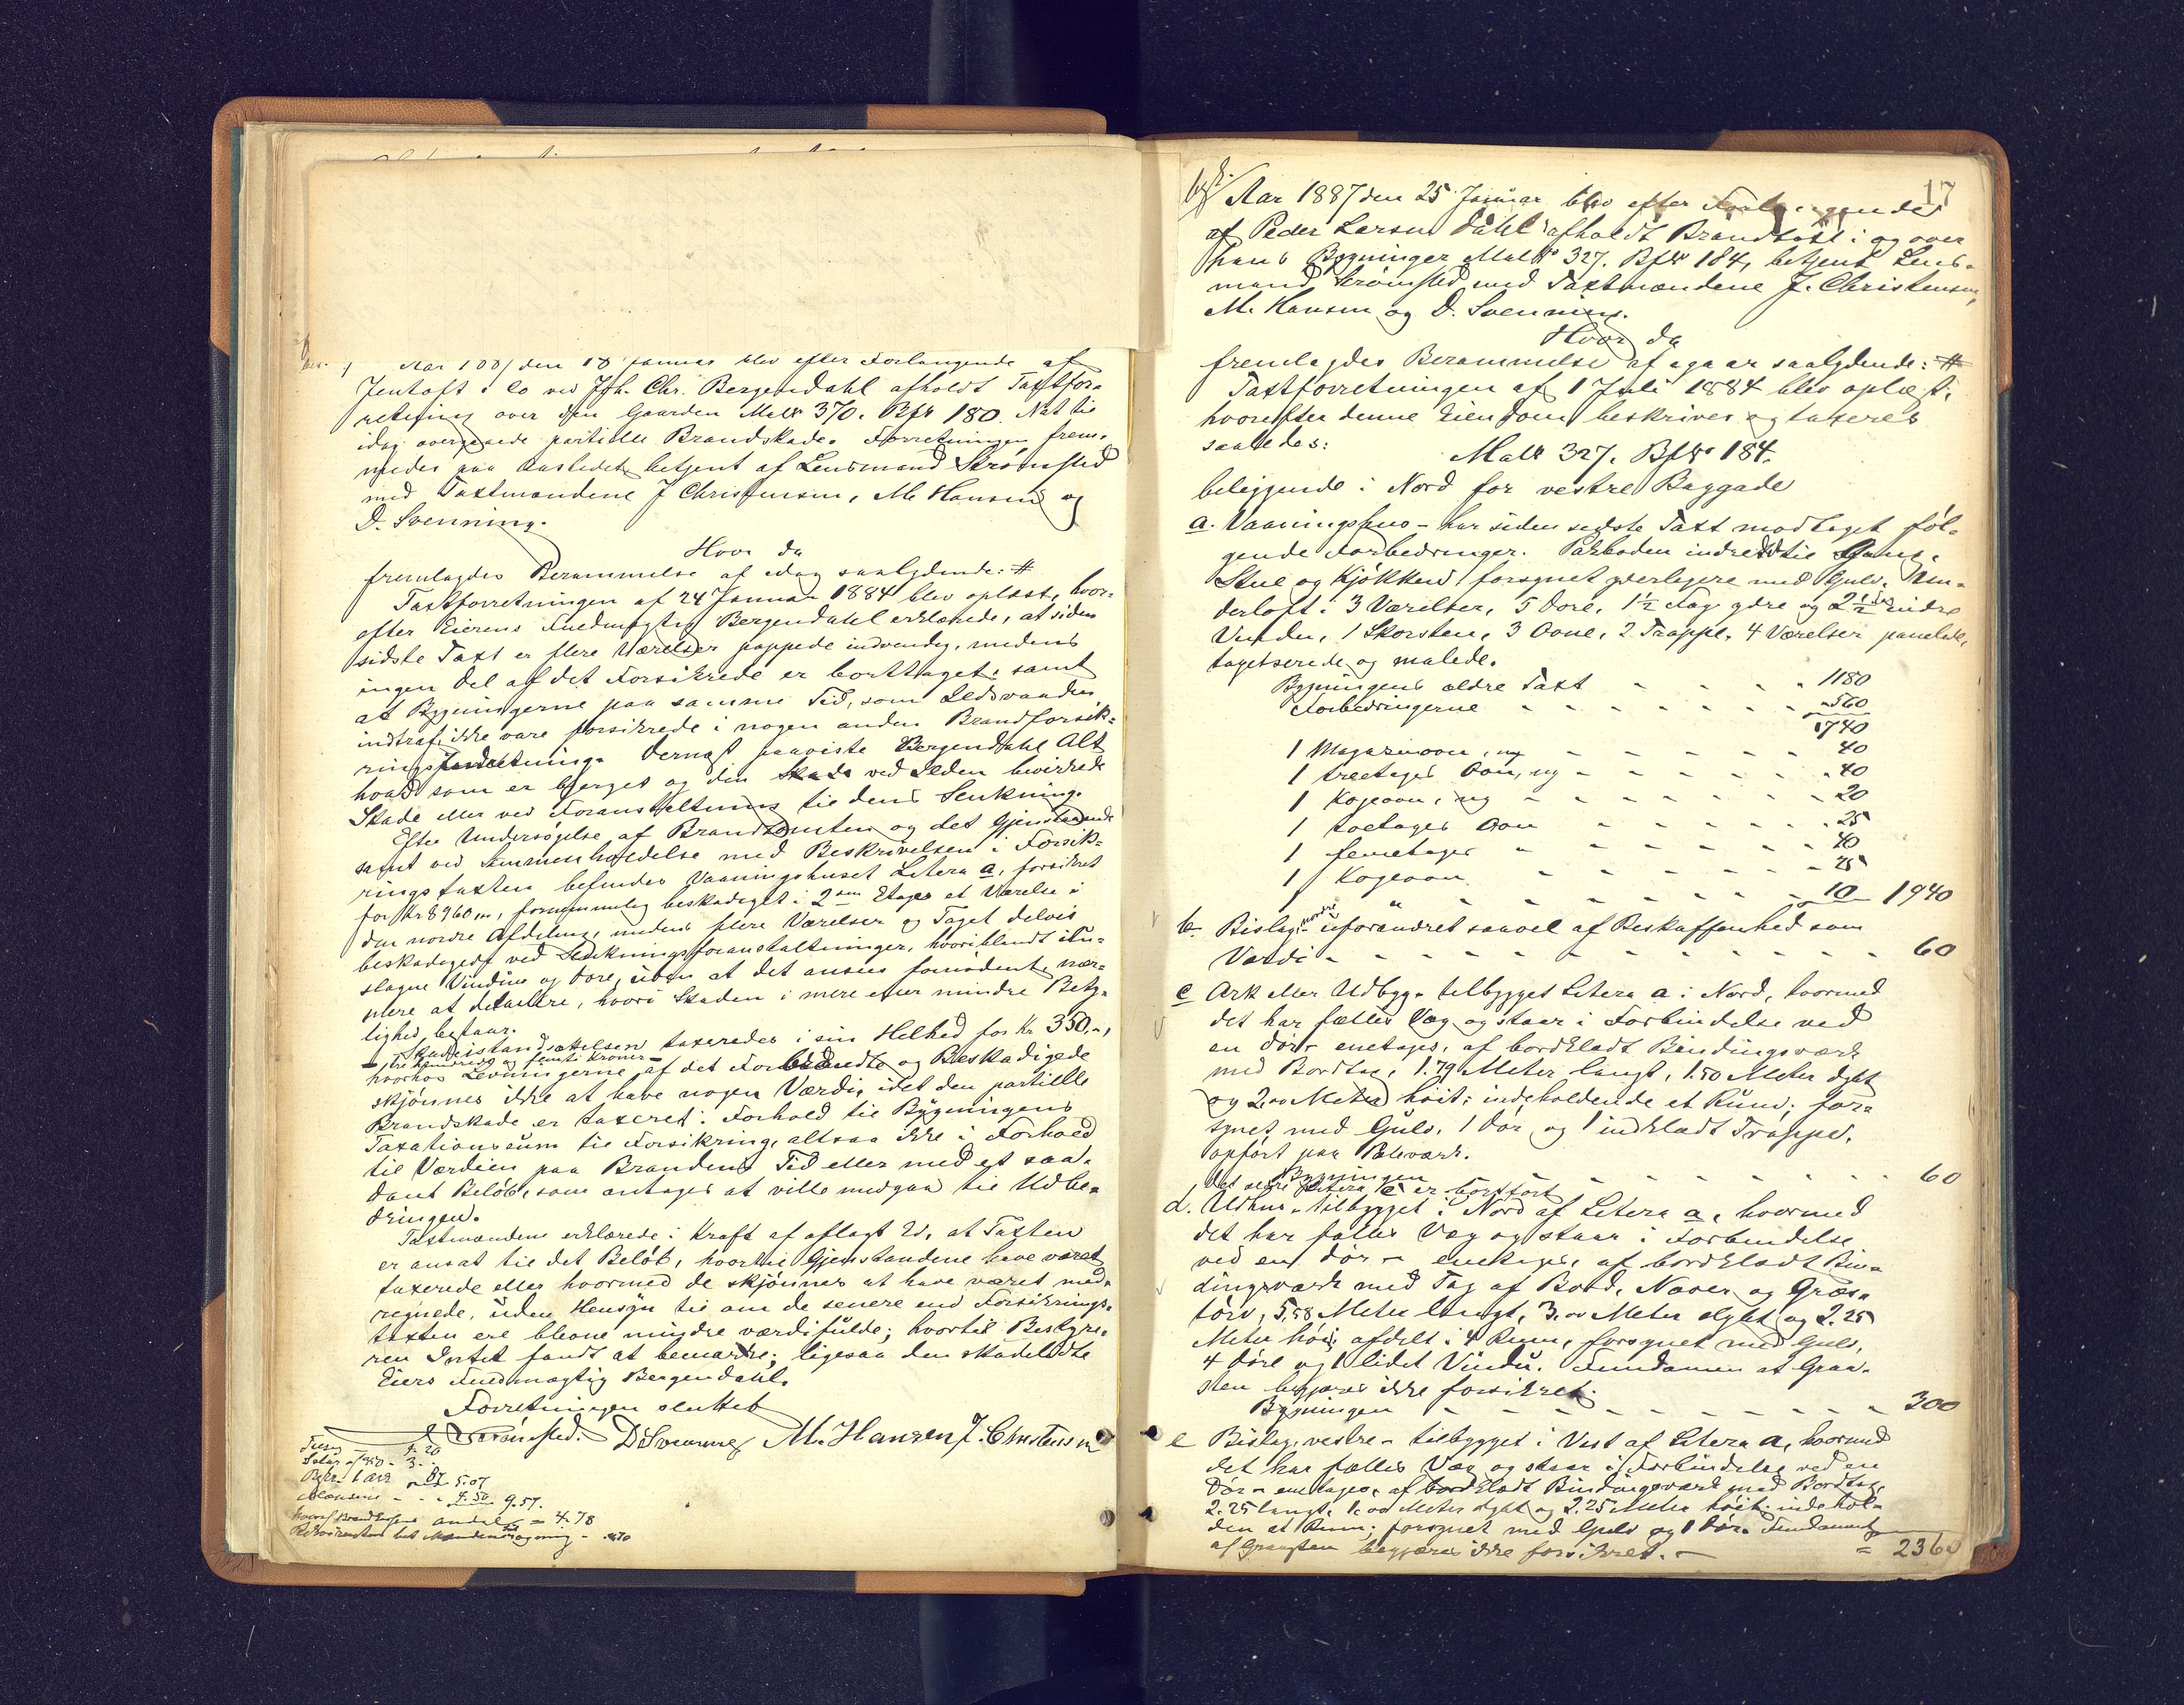 Aar 1887 den 18 Januar blev efter Forlangende af
Jentoft & Co ved Joh. Chr. Bergendahl afholdt Taxtfor-
retning over den Gaarden Mat№ 370. Bf№ 180. Nat til
idag overgaaede partielle Brandskade. Forretningen frem-
medes paa Aastedet betjent af Lensmand Strømsted
med Taxtmændene J Christensen, M. Hansen og
D. Svenning.
Hvor da
fremlagdes Berammelse af idag saalydende: #
Taxtforretningen af 24 Januar 1884 blev oplæst, hvor-
efter Eierens Fuldmægtig Bergendahl erklærede, at siden
sidste Taxt er flere Værelser pappede indvendig, medens
ingen Del af det Forsikrede er borttaget, samt
at Bygningerne paa samme Tid, som Ildsvaaden
indtraf, ikke vare forsikrede i nogen anden Brandforsik-
ringsindretning. Dernæst paaviste Bergendahl Alt
hvad som er bjerget og den Skade ved Ilden bevirkede
Skade eller ved Foranstaltning til dens Slukning.
Efter Undersøgelse af Brandtomten og det Gjenstaaende
samt ved Sammenholdelse med Beskrivelsen i Forsik-
ringstaxten befindes Vaaningshuset Litera a, forsikret
for Kr 8960,00, fornemmelig beskadiget i 2den Etage et Værelse i
den nordre Afdeling, medens flere Værelser og Taget delvis
beskadiget ved Slukningsforanstaltninger, hvoriblandt itu-
slagne Vinduer og Døre, uden at det ansees fornødent nær-
mere at detaillere, hvori Skaden i mere eller mindre Bety-
lighed bestaar.
Istandsættelsen taxeredes i sin Helhed for Kr 350,-,
- tre hundrede og femti Kroner -
hvorhos Levningerne af det Forbrændte og Beskadigede
skjønnes ikke at have nogen Værdi, idet den partielle
Brandskade er taxeret i Forhold til Bygningens
Taxationssum til Forsikring, altsaa ikke i Forhold
til Værdien paa Brandens Tid eller med et saa-
dant Beløb, som antages at ville medgaa til Udbe-
dringen.
Taxtmændene erklærede i Kraft af aflagt Ed, at Taxten
er ansat til det Beløb, hvortil Gjenstandene have været
taxerede eller hvormed de skjønnes at have været med-
regnede, uden Hensyn til om de senere end Forsikrings-
taxten ere blevne mindre værdifulde; hvortil Bestyre-
ren Intet fandt at bemærke; ligesaa den skadelidte
Eiers Fuldmægtig Bergendahl.
Forretningen sluttet
Strømsted. D Svenning M. Hansen J. Christensen
4.20
Salær af 350 - 3.-
87 5.07
4.50 9.57.
andel = 4.78
17
Aar 1887 den 25 Januar blev efter Forlangende
af Peder Larsen Dahl afholdt Brandtaxt i og over
hans Bygninger Mat№ 327. Bf№ 184, betjent Lens-
mand Strømsted med Taxtmændene J. Christensen,
M. Hansen og D. Svenning.
Hvor da
fremlagdes Berammelse af saalydende: #
Taxtforretningen af 1 Juli 1884 blev oplæst,
hvorefter denne Eiendom beskrives og taxeres
saaledes:
Mat№ 327. Bf№ 184.
beliggende i Nord for vestre Baggade
a. Vaaningshus - har siden sidste Taxt modtaget føl-
gende Forbedringer. Pakboden indredet til Gang,
Stue og Kjøkken, forsynet yderligere med Gulv, Un-
derloft i 3 Værelser, 5 Døre, 1½ Fag ydre og 2½ Fag indre
Vinduer, 1 Skorsten, 3 Ovne, 2 Trapper, 4 Værelser panelede,
tapetserede og malede.
Bygningens ældre Taxt - - - - 1180
Forbedringerne - - - - - 560
1740
1 Magasinovn, ny - - - - - 40
1 treetages Ovn, ny - - - - - 40
1 Kogeovn, ny - - - - - 20
1 toetages Ovn - - - - - 25
1 femetages " - - - - - 40
1 Kogeovn - - - - - 25
1 " - - - - - 10 - 1940
b. Bislag, nordre - uforandret saavel af Beskaffenhed som
Værdi - - - - - - - - 60
c Ark eller Udbyg. tilbygget Litera a i Nord, hvormed
det har fælles Væg og staar i Forbindelse ved
en Dør - enetages, af bordklædt Bindingsværk
med Bordtag, 1.79 Meter langt, 1.50 Meter dybt
og 2.00 Meter høit; indeholdende et Rum; for-
synet med Gulv, 1 Dør og 1 indklædt Trappe,
opført paa Pæleværk.
Bygningen - - - - - - - - 60
Det ældre Litera c er bortført
d. Udhus - tilbygget i Nord af Litera a, hvormed
det har fælles Væg og staar i Forbindelse
ved en Dør - enetages, af bordklædt Bin-
dingsværk med Tag af Bord, Næver og Græs-
tørv, 5,58 Meter langt, 3.00 Meter dybt og 2.25
Meter høit, afdelt i 4 Rum, forsynet med Gulv,
4 Døre og 1 lidet Vindu. Fundamen at Graa-
sten begjæres ikke forsikret.
Bygningen - - - - - - - 300
e Bislag, vestre - tilbygget i Vest af Litera a, hvormed
det har fælles Væg og staar i Forbindelse ved en
Dør - enetages, af bordklædt Bindingsværk med Bordtag,
2.25 langt, 1.00 Meter dybt og 2.25 Meter høit; indehol-
den et Rum; forsynet med Gulv og 1 Dør. Fundament
af Graasten begjæres ikke forsikret. -
= 2360